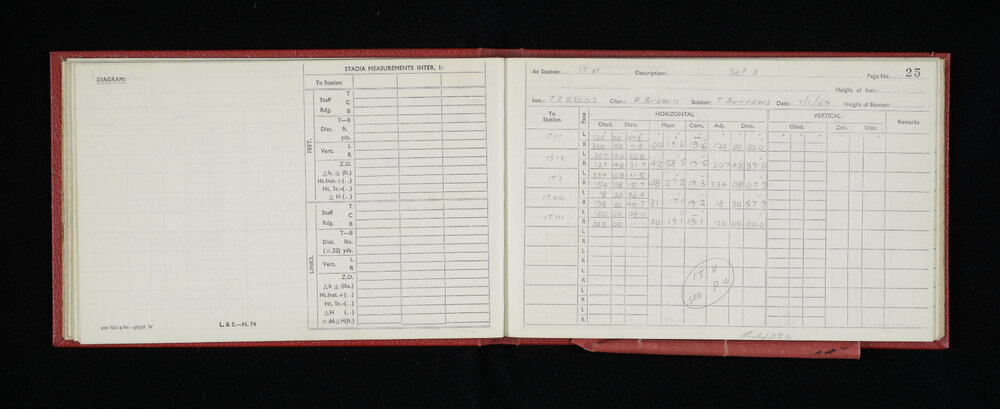 DIAGRAM:
STADIA MEASUREMENTS INTER. I:
To Station
FEET.
Staff T
Rdg. C
B
T—B
Dist. ft.
yds.
Vert. L
R
Z.D.
△h. ± (ft.)
Ht.Inst.+(..)
Ht. St.–(..)
△ H (..)
LINKS.
Staff T
C
Rdg. B
T—B
Dist. lks.
(×.22) yds.
Vert. L
R
Z.D.
△h ± (lks.)
Ht.Inst.+(..)
Ht. St.–(..)
△H (..)
×.66△H(ft.)
L. & S.—N. 74
At Station: IT VI Description: Set 3 Page No. 25
Height of Inst.:
Inst.: T3 83003 Obsr.: R Brown Booker: T. Burrows Date: 7/1/63 Height of Beacon:
To Station Face HORIZONTAL VERTICAL Remarks
Obsd. Dirn. Mean Corn. Adj. Dirn. Obsd. Zen. Dist.
IT III L 120 00 07.8
R 300 00 11.8 00 19.6 19.6 120 00 00.0
IS IX L 307 42 26.8
R 127 42 31.7 42 58.5 19.5 307 42 39.0
IT X L 334 08 11.5
R 154 08 15.7 08 27.2 19.3 334 08 07.9
IT VIII L 18 30 36.4
R 198 30 40.7 31 17.1 19.2 18 30 57.9
IT III L 120 00 08.0
R 300 00 11.1 00 19.1 19.1 120 00 00.0
L
R
L
R
L
R
L
R
L
R
L
R
IT V
see P 4